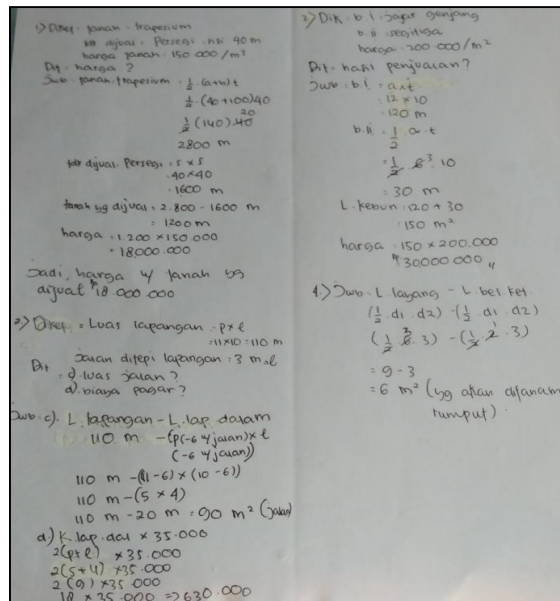 1) Diket. tanah trapesium
tdk dijual. Persegi. sisi 40 m
harga tanah. 150.000/m²
Dit. harga ?
Jwb. tanah trapesium = ½ (a+b) t
½ . (40+100) 40
½ (140) . 40 20
2800 m
tdk dijual. Persegi = s x s
: 40 x 40
: 1600 m
tanah yg dijual = 2.800 - 1600 m
= 1200 m
harga = 1.200 x 150.000
= 18.000.000
Jadi, harga u/ tanah yg
dijual 18.000.000
2) Diket. = Luas lapangan = p x l
= 11 x 10 = 110 m
jalan ditepi lapangan = 3 m
Dit : c) luas jalan ?
d) biaya pagar ?
Jwb. c). L. lapangan - L. lap. dalam
110 m - (p(-6 u/ jalan) x l
(-6 u/ jalan))
110 m - (11 - 6) x (10 - 6))
110 m - (5 x 4)
110 m - 20 m = 90 m² (jalan)
d) K. lap. dal x 35.000
2(p+l) x 35.000
2(5+4) x 35.000
2(9) x 35.000
18 x 35.000 => 630.000
3) Dik. b.i. Jajar genjang
b.ii segitiga
harga = 200.000/m²
Dit. hasil penjualan?
Jwb = b.i = a x t
= 12 x 10
= 120 m
b.ii = ½ a . t
= ½ . 6 3 . 10
= 30 m
L. kebun = 120 + 30
= 150 m²
harga = 150 x 200.000
= 30.000.000 "
4.) Jwb. L. layang - L. bel. ket.
(½ . d1 . d2) - (½ . d1 . d2)
(½ . 6 3 . 3) - (½ . 2 1 . 3)
= 9 - 3
= 6 m² (yg akan ditanam
rumput).